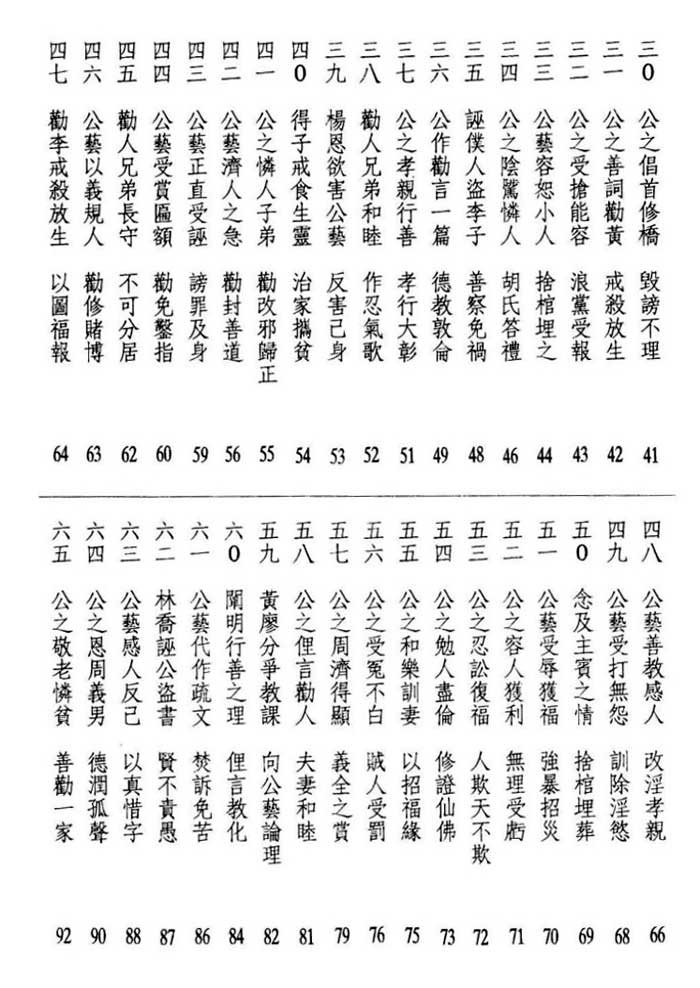 三0 公之倡首修橋 毀謗不理 41
三一 公之善詞勸黃 戒殺放生 42
三二 公之受搶能容 浪黨受報 43
三三 公藝容恕小人 捨棺埋之 44
三四 公之陰騭憐人 胡氏答禮 46
三五 誣僕人盜李子 善察免禍 48
三六 公作勸言一篇 德教敦倫 49
三七 公之孝親行善 孝行大彰 51
三八 勸人兄弟和睦 作忍氣歌 52
三九 楊恩欲害公藝 反害己身 53
四0 得子戒食生靈 治家攜貧 54
四一 公之憐人子弟 勸改邪歸正 55
四二 公藝濟人之急 勸封善道 56
四三 公藝正直受誣 謗罪及身 59
四四 公藝受賞匾額 勸免鑿指 60
四五 勸人兄弟長守 不可分居 62
四六 公藝以義規人 勸修賭博 63
四七 勸李戒殺放生 以圖福報 64
四八 公藝善教感人 改淫孝親 66
四九 公藝受打無怨 訓除淫慾 68
五0 念及主賓之情 捨棺埋葬 69
五一 公藝受辱獲福 強暴招災 70
五二 公之容人獲利 無理受虧 71
五三 公之忍訟復福 人欺天不欺 72
五四 公之勉人盡倫 修證仙佛 73
五五 公之和樂訓妻 以招福緣 75
五六 公之受冤不白 賊人受罰 76
五七 公之周濟得顯 義全之賞 79
五八 公之俚言勸人 夫妻和睦 81
五九 黃廖分爭教課 向公藝論理 82
六0 闡明行善之理 俚言教化 84
六一 公藝代作疏文 焚訴免苦 86
六二 林喬誣公盜書 賢不責愚 87
六三 公藝感人反己 以真惜字 88
六四 公之恩周義男 德潤孤聲 90
六五 公之敬老憐貧 善勸一家 92